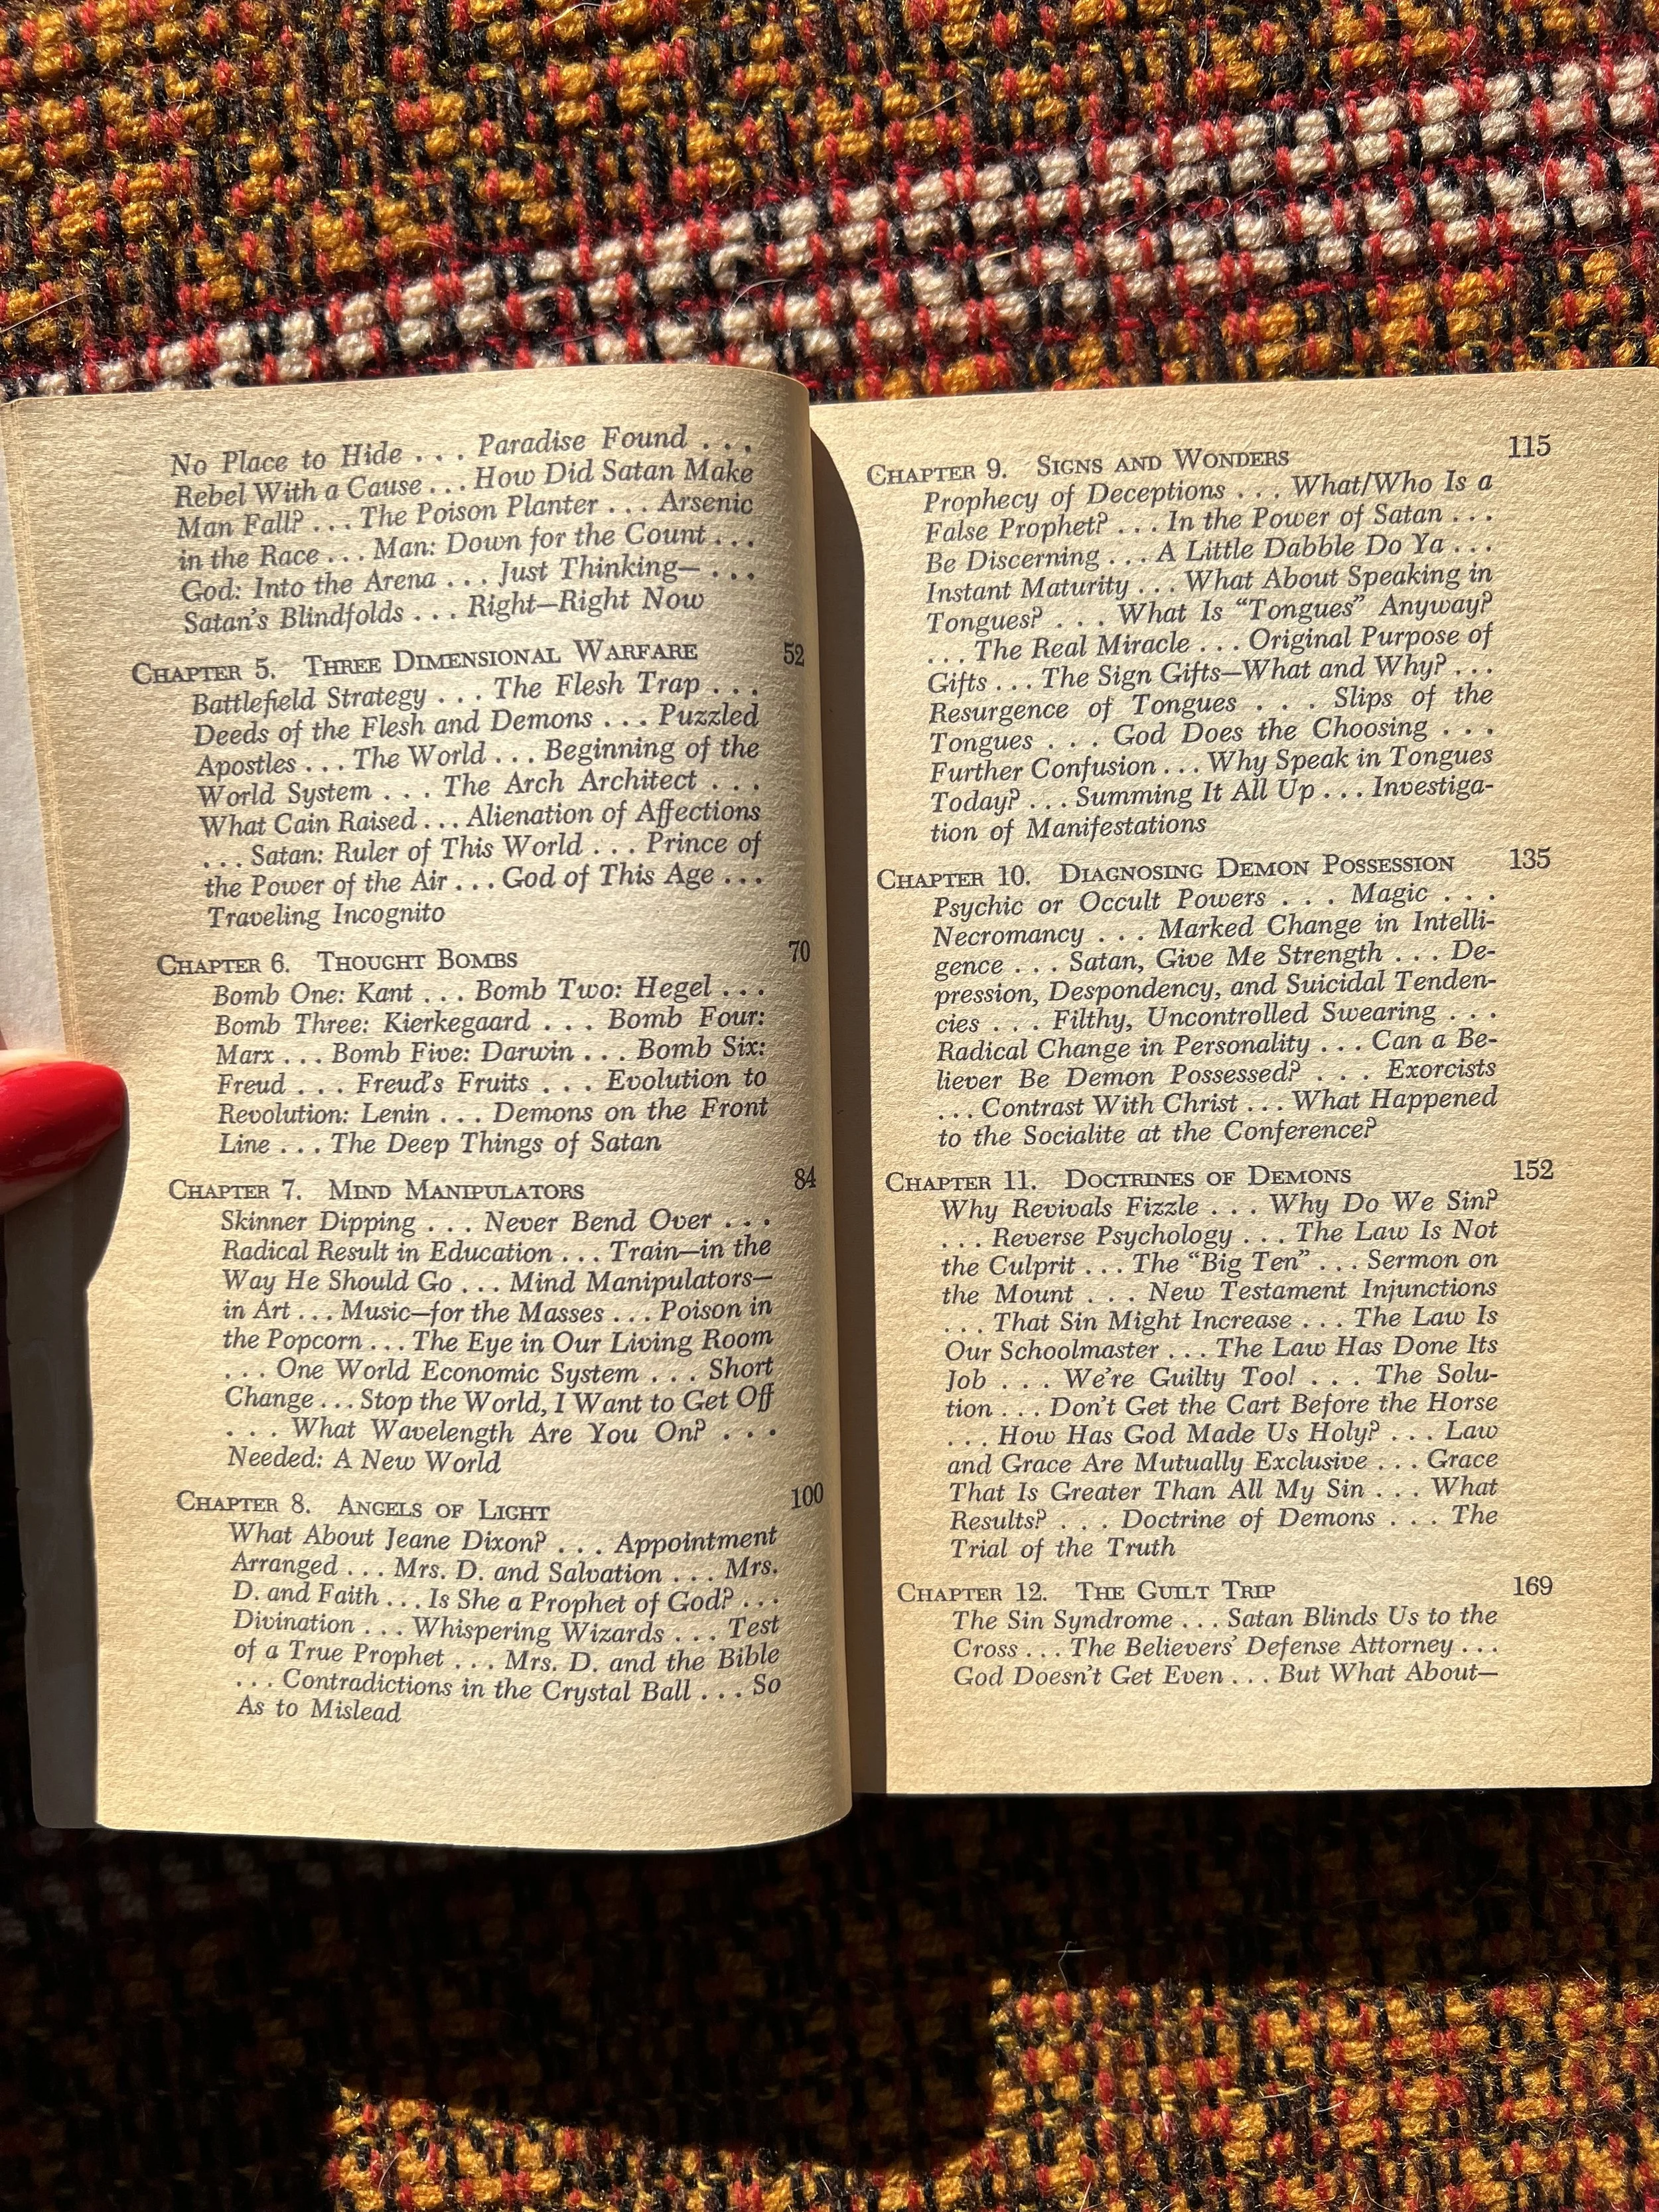 No Place to Hide . . . Paradise Found . . .
Rebel With a Cause . . . How Did Satan Make
Man Fall? . . . The Poison Planter . . . Arsenic
in the Race . . . Man: Down for the Count . . .
God: Into the Arena . . . Just Thinking— . . .
Satan's Blindfolds . . . Right—Right Now
CHAPTER 5. THREE DIMENSIONAL WARFARE 52
Battlefield Strategy . . . The Flesh Trap . . .
Deeds of the Flesh and Demons . . . Puzzled
Apostles . . . The World . . . Beginning of the
World System . . . The Arch Architect . . .
What Cain Raised . . . Alienation of Affections
. . . Satan: Ruler of This World . . . Prince of
the Power of the Air . . . God of This Age . . .
Traveling Incognito
CHAPTER 6. THOUGHT BOMBS 70
Bomb One: Kant . . . Bomb Two: Hegel . . .
Bomb Three: Kierkegaard . . . Bomb Four:
Marx . . . Bomb Five: Darwin . . . Bomb Six:
Freud . . . Freud's Fruits . . . Evolution to
Revolution: Lenin . . . Demons on the Front
Line . . . The Deep Things of Satan
CHAPTER 7. MIND MANIPULATORS 84
Skinner Dipping . . . Never Bend Over . . .
Radical Result in Education . . . Train—in the
Way He Should Go . . . Mind Manipulators—
in Art . . . Music—for the Masses . . . Poison in
the Popcorn . . . The Eye in Our Living Room
. . . One World Economic System . . . Short
Change . . . Stop the World, I Want to Get Off
. . . What Wavelength Are You On? . . .
Needed: A New World
CHAPTER 8. ANGELS OF LIGHT 100
What About Jeane Dixon? . . . Appointment
Arranged . . . Mrs. D. and Salvation . . . Mrs.
D. and Faith . . . Is She a Prophet of God? . . .
Divination . . . Whispering Wizards . . . Test
of a True Prophet . . . Mrs. D. and the Bible
. . . Contradictions in the Crystal Ball . . . So
As to Mislead
CHAPTER 9. SIGNS AND WONDERS 115
Prophecy of Deceptions . . . What/Who Is a
False Prophet? . . . In the Power of Satan . . .
Be Discerning . . . A Little Dabble Do Ya . . .
Instant Maturity . . . What About Speaking in
Tongues? . . . What Is "Tongues" Anyway?
. . . The Real Miracle . . . Original Purpose of
Gifts . . . The Sign Gifts—What and Why? . . .
Resurgence of Tongues . . . Slips of the
Tongues . . . God Does the Choosing . . .
Further Confusion . . . Why Speak in Tongues
Today? . . . Summing It All Up . . . Investiga-
tion of Manifestations
CHAPTER 10. DIAGNOSING DEMON POSSESSION 135
Psychic or Occult Powers . . . Magic . . .
Necromancy . . . Marked Change in Intelli-
gence . . . Satan, Give Me Strength . . . De-
pression, Despondency, and Suicidal Tenden-
cies . . . Filthy, Uncontrolled Swearing . . .
Radical Change in Personality . . . Can a Be-
liever Be Demon Possessed? . . . Exorcists
. . . Contrast With Christ . . . What Happened
to the Socialite at the Conference?
CHAPTER 11. DOCTRINES OF DEMONS 152
Why Revivals Fizzle . . . Why Do We Sin?
. . . Reverse Psychology . . . The Law Is Not
the Culprit . . . The "Big Ten" . . . Sermon on
the Mount . . . New Testament Injunctions
. . . That Sin Might Increase . . . The Law Is
Our Schoolmaster . . . The Law Has Done Its
Job . . . We're Guilty Too! . . . The Solu-
tion . . . Don't Get the Cart Before the Horse
. . . How Has God Made Us Holy? . . . Law
and Grace Are Mutually Exclusive . . . Grace
That Is Greater Than All My Sin . . . What
Results? . . . Doctrine of Demons . . . The
Trial of the Truth
CHAPTER 12. THE GUILT TRIP 169
The Sin Syndrome . . . Satan Blinds Us to the
Cross . . . The Believers' Defense Attorney . . .
God Doesn't Get Even . . . But What About—